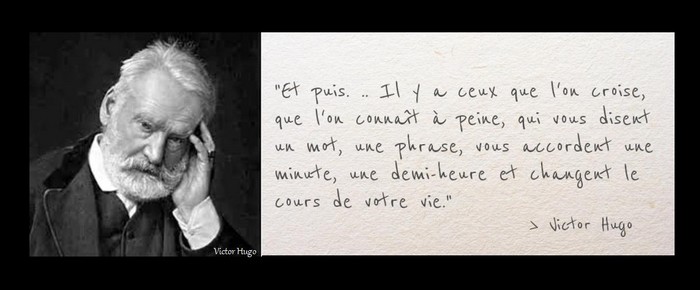 "Et puis. .. Il y a ceux que l'on croise,
que l'on connaît à peine, qui vous disent
un mot, une phrase, vous accordent une
minute, une demi-heure et changent le
cours de votre vie."
> Victor Hugo
Victor Hugo